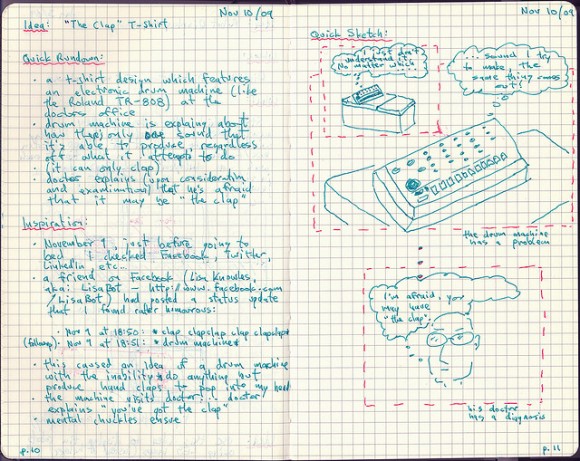 Nov 10/09
Idea: "The Clap" T-Shirt
Quick Rundown:
• a t-shirt design which features
an electronic drum machine (like
the Roland TR-808) at the
doctors office
• drum machine is explaining about
how there's only one sound that
it's able to produce, regardless
of what it attempts to do
(it can only clap)
• doctor explains (upon consideration
and examination) that he's afraid
that it may be "the clap"
Inspiration:
• November 9, just before going to
bed I checked Facebook, Twitter,
LinkedIn etc..
• a friend on Facebook (Lisa Knowles,
aka: LisaBot - http://www.facebook.com
/LisaBot) had posted a status update
that I found rather humourous:
: Nov 9 at 18:50: * clap clapclap clap clapclap*
(followup): Nov 9 at 18:51: * drum machine*
• this caused an idea of a drum machine
with the inability to do anything but
produce hand claps to pop into my head
• the machine visits doctor... doctor
explains "you've got the clap"
• mental chuckles ensue
p.10
Nov 10/09
Quick Sketch:
I just don't
understand it.
No matter which...
...sound I try
to make, the
same thing comes
out!!
the drum machine
has a problem
I'm afraid, you
may have
"the clap".
his doctor
has a diagnosis
p.11